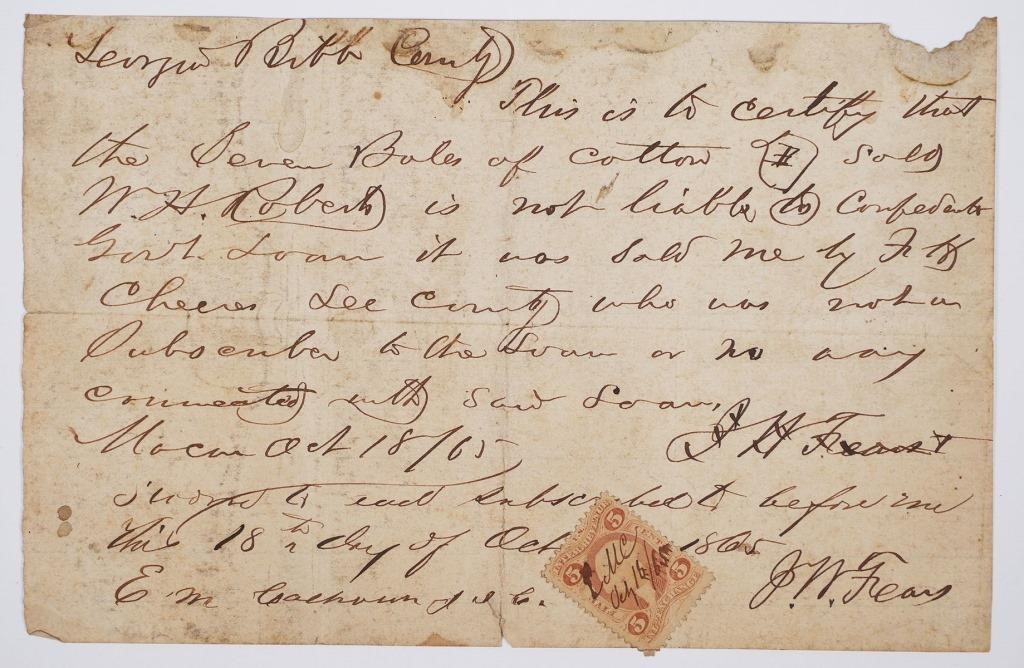 Georgia Bibb County
This is to certify that
the Seven Bales of cotton I sold
W. H. Roberts is not liable to Confederate
Govt. Loan it was sold me by
Cheeves Lee County who was not a
Subscriber to the Loan or no way
connected with said Loan,
Macon Oct 18/65
J W Fears
Sworn to and subscribed to before me
this 18th day of Oct 1865
E. M. Calhoun J. I. C.
J. W. Fears
5
5
5
5
EMC